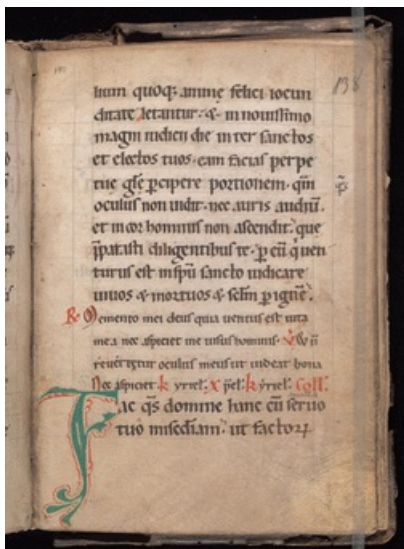 138
lium quoq; anime felici iocun
ditate letantur. & in nouissimo
magni iudicii die inter sanctos
et electos tuos. eam facias perpe
tue gl̄e ꝑcipere portionem. qm̄
oculus non uidit. nec auris audiu͞.
et in cor hominis non ascendit. que
p̄parasti diligentibus te. ꝑ eu͞ q uen
turus est in sp̄u sancto iudicare
uiuos & mortuos & sc̄lm ꝑ igne͞.
R. Memento mei deus quia uentus est uita
mea nec aspiciet me uisus hominis. V Et n̄
reuertetur oculus meus ut uideat bona
Nec aspiciet kyriel. xp̄el. kyriel. Coll.
Fac qs̄ domine hanc cu͞ seruo
tuo mis̄ediam. ut factoꝝ